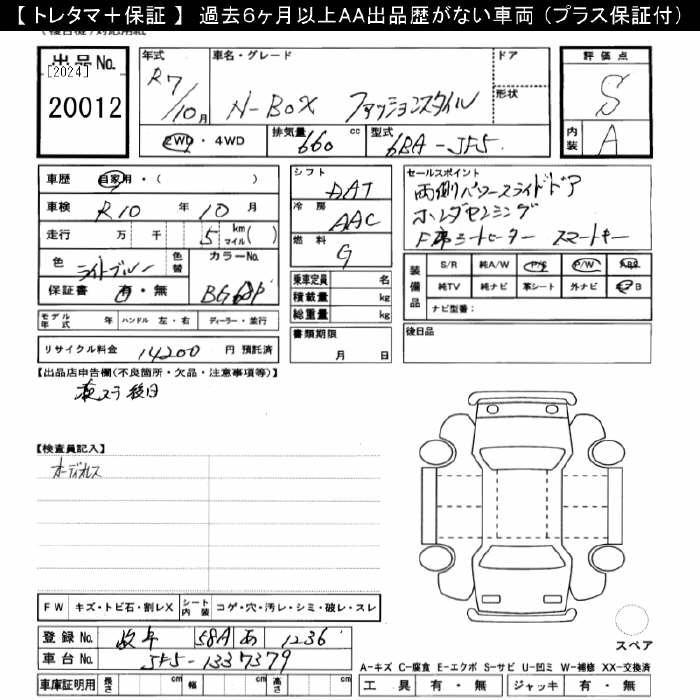 【 トレタマ＋保証 】 過去６ヶ月以上AA出品歴がない車両（プラス保証付）
出品No.
[2024]
20012
年式 車名・グレード ドア
R7/10月 N-BOX ファッションスタイル 形状
2WD ・ 4WD 排気量 660 cc 型式 6BA-JF5
評価点
S
内装 A
車歴 自家用・( )
車検 R10 年 10 月
走行 万 千 5 km マイル( )
色 ライトブルー 色替 カラーNo.
保証書 有・無 BG
モデル年式 年 ハンドル 左・右 ディーラー・並行
リサイクル料金 14200 円 預託済
シフト DAT
冷房 AAC
燃料 G
乗車定員 名
積載量 kg
総重量 kg
書類期限
月 日
セールスポイント
両側パワースライドドア
ホンダセンシング
F席シートヒーター スマートキー
装備品
S/R 純A/W P/S P/W ABS
純TV 純ナビ 革シート 外ナビ エアB
ナビ型番：
後日品
【出品店申告欄(不良箇所・欠品・注意事項等)】
後日
【検査員記入】
オーディオレス
FW キズ・トビ石・割レX シート内装 コゲ・穴・汚レ・シミ・破レ・スレ
登録No. 岐阜 58A あ 1236
車台No. JF5-1337379
車庫証明用 長さ cm 幅 cm 高さ cm
スペア
A-キズ C-腐食 E-エクボ S-サビ U-凹ミ W-補修 XX-交換済
工具 有・無 ジャッキ 有・無